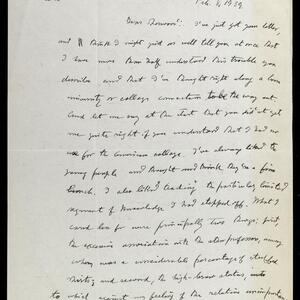 Feb. 4, 1939
Dear Norwood: I've just got your letter,
and I think I might just as well tell you at once that
I have more than half understood this trouble you
describe and that I've thought right along a com-
munity or college connection to be the way out.
And let me say at the start that you didn't get
me quite right if you understood that I had no
use for the American college. I've always liked the
young people and thought and think they're a fine
bunch. I also liked teaching the particular limited
segment of knowledge I had stepped off. What I
cared less for were principally two things: first,
the excessive association with the other professors, among
whom was a considerable percentage of stuffed
shirts; and second, the high-brow status, into
to which against my feeling of the relative unimportance